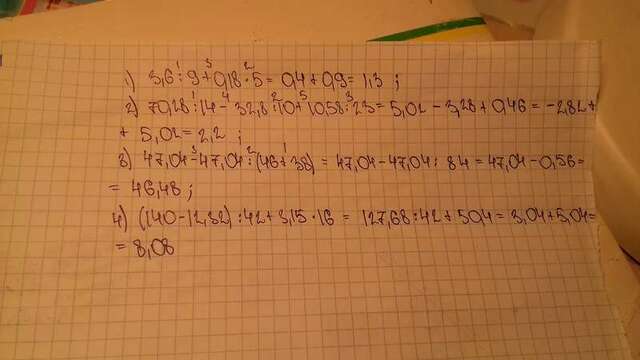 1) 3,6:9+0,18·5=0,4+0,9=1,3;
2) 70,28:14-32,8:10+10,58:23=5,02-3,28+0,46=-2,82+
+5,02=2,2;
3) 47,04-47,04:(46+38)=47,04-47,04:84=47,04-0,56=
=46,48;
4) (140-12,32):42+3,15·16=127,68:42+5,04=3,04+5,04=
=8,08